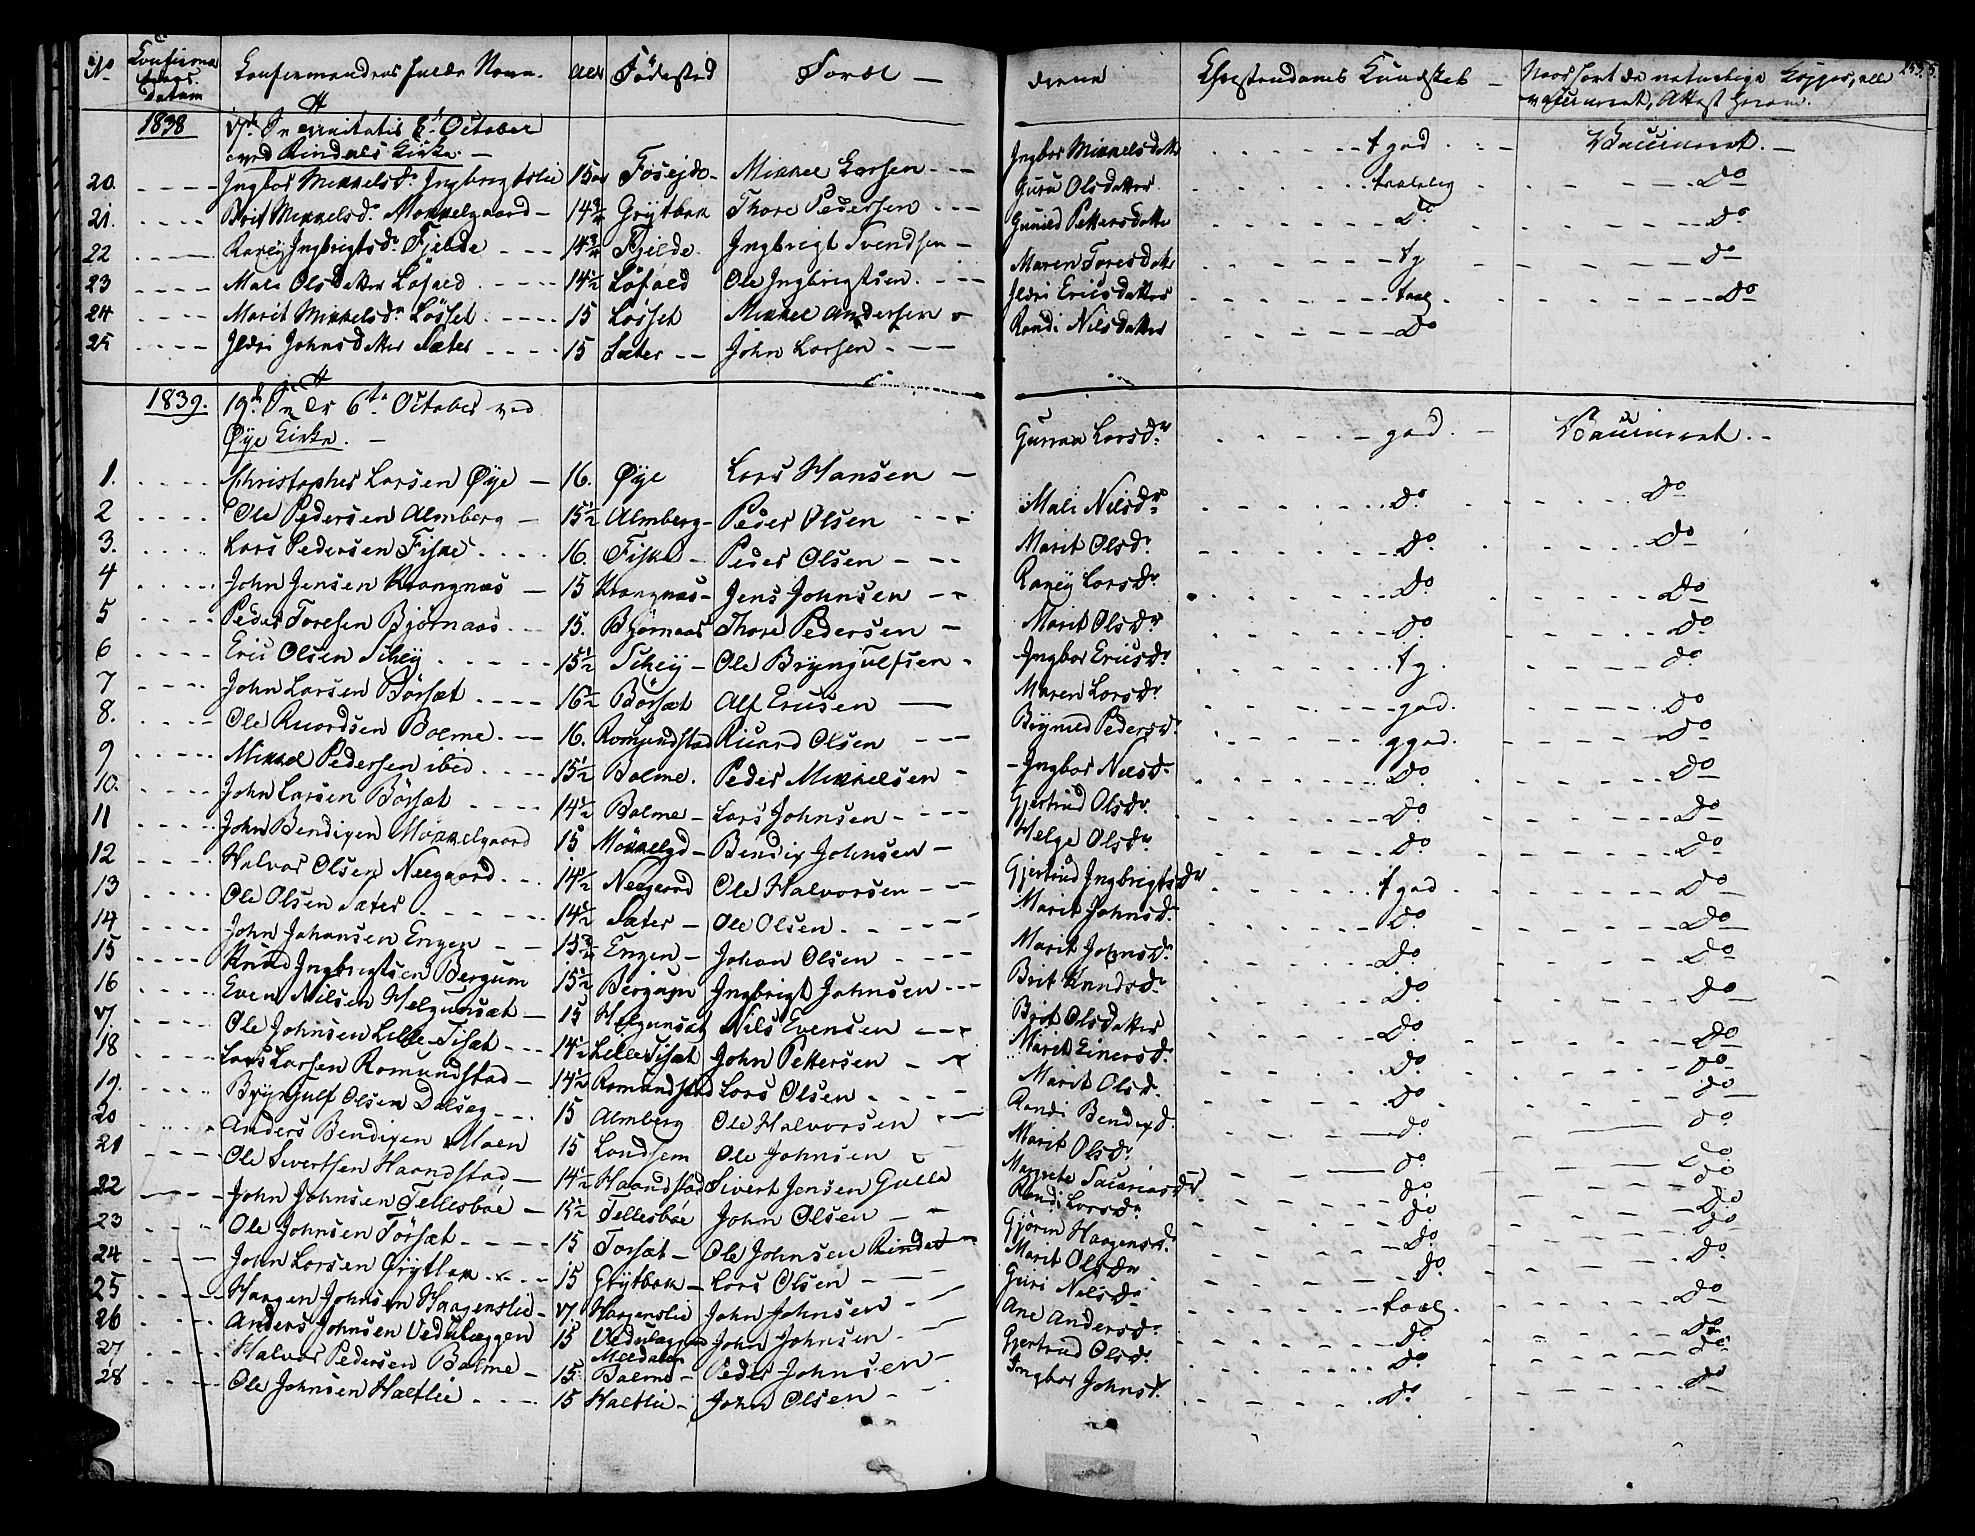 No Confirmations Datum Confirmandens fulde Navn. Alder Fødested Foræl — drene Christendoms Kundskab — 253.
1838 17de Trinitatis October
ved Rindals Kirke. —
20. Ingbor Mikkelsdr Ingbrigtslie 15 Mikkel Larsen Ingbor Mikkelsdatter t god Vaccineret. —
21. Brit Mikkelsdr Mokkelgaard 14 3/4 Grytbak Thore Pedersen Guru Olsdatter taalelig Do
22 Raney Ingbrigtsdr Fjelde 14 3/4 Fjelde Ingbrigt Svendsen Gunild Pettersdatter Do Do
23 Mali Olsdatter Løfald 14 1/2 Løfald Ole Ingbrigtsen Maren Toresdatter tg Do
24 Marit Mikkelsdr Løsset 15 Løsset Mikkel Andersen Ildri Ericsdatter taal Do
25 Ildri Johnsdatter Sæter 15 Sæter John Larsen Randi Nilsdatter Do
1839. 19de 6te October ved
Øye Kirke. —
1. Christopher Larsen Øye 16. Øye Lars Hansen Gurrua Larsdr god. Vaccineret.
2 Ole Pedersen Almberg 15 1/2 Almberg Peder Olsen Mali Nilsdr Do Do
3. Lars Pedersen Fiske 16. Fiske Peder Olsen Marit Olsdr Do Do
4 John Jensen Krangnæs 15 Krangnæs Jens Johnsen Raney Larsdr Do Do
5 Peder Toresen Bjørnaas 15. Bjørnaas Thore Pedersen Marit Olsdr Do Do
6 Eric Olsen Schey 15 1/2 Schey Ole Bryngulfsen Ingbor Ericsdr tg. Do
7 John Larsen Børsæt 16 1/2 Børsæt Alf Ericsen Maren Larsdr god. Do
8. Ole Ricardsen Bolme 16. Romundstad Ricard Olsen Brynild Pedersdr ggod. Do
9 Mikkel Pedersen ibid 15 1/2 Bolme. Peder Mikkelsen Ingbor Nilsdr Do Do
10. John Larsen Børsæt 14 1/2 Bolme Lars Johnsen Gjertrud Olsdr Do Do
11 John Bendixen Mökkelgaard 15 Mökkelgd Bendix Johnsen Helge Olsdr Do Do
12 Halvor Olsen Neegaard 14 1/2 Neegaard Ole Halvorsen Gjertrud Ingbrigtsdr t god Do
13 Ole Olsen Sæter 14 1/2 Sæter Ole Olsen Marit Johnsd. Do Do
14 John Johansen Engen 15 3/4 Engen Johan Olsen Marit Johnsd. Do Do
15 Knud Ingbrigtsen Bergum 15 1/2 Bergum Ingbrigt Johnsen Brit Knudsdr Do Do
16 Even Nilsen Helgunsæt 15 Helgunsæt Nils Evensen Brit Olsdatter Do Do
17. Ole Johnsen Lille Tisæt 14 1/2 Lille Tisæt John Pettersen Marit Einersd. Do Do
18 Lars Larsen Romundstad 14 1/2 Romundstad Lars Olsen Marit Olsd. Do Do
19. Bryngulf Olsen Dalseg 15 Almberg Ole Halvorsen Randi Bendixd. Do Do
20 Anders Bendixen Moen 15 Landsem Ole Johnsen Marit Olsdr Do Do
21 Ole Sivertsen Haandstad 14 1/2 Haandstad Sivert Jensen Gulla Magrete Do Do
22 John Johnsen Tellesböe 15 1/2 Tellesböe John Olsen Randi Larsdr Do Do
23 Ole Johnsen Törsæt 15 Torsæt Ole Johnsen Rindal Gjøren Haagensd. Do Do
24 John Larsen Grytbak 15 Grytbak Lars Olsen Marit Olsdr Do Do
25 Haagen Johnsen Haagenslie 17. Haagenslie John Johnsen Guri Nilsdr taal. Do
26 Anders Johnsen Vedulæggen 15 Vedulæggen Meldalen John Johnsen Ane Andersdr Do Do
27 Halvor Pedersen Bolme 15 Bolme Peder Johnsen Gjertrud Olsdr Do Do
28 Ole Johnsen Haltlie 15 Haltlie John Olsen Ingbor Johnsdr Do Do